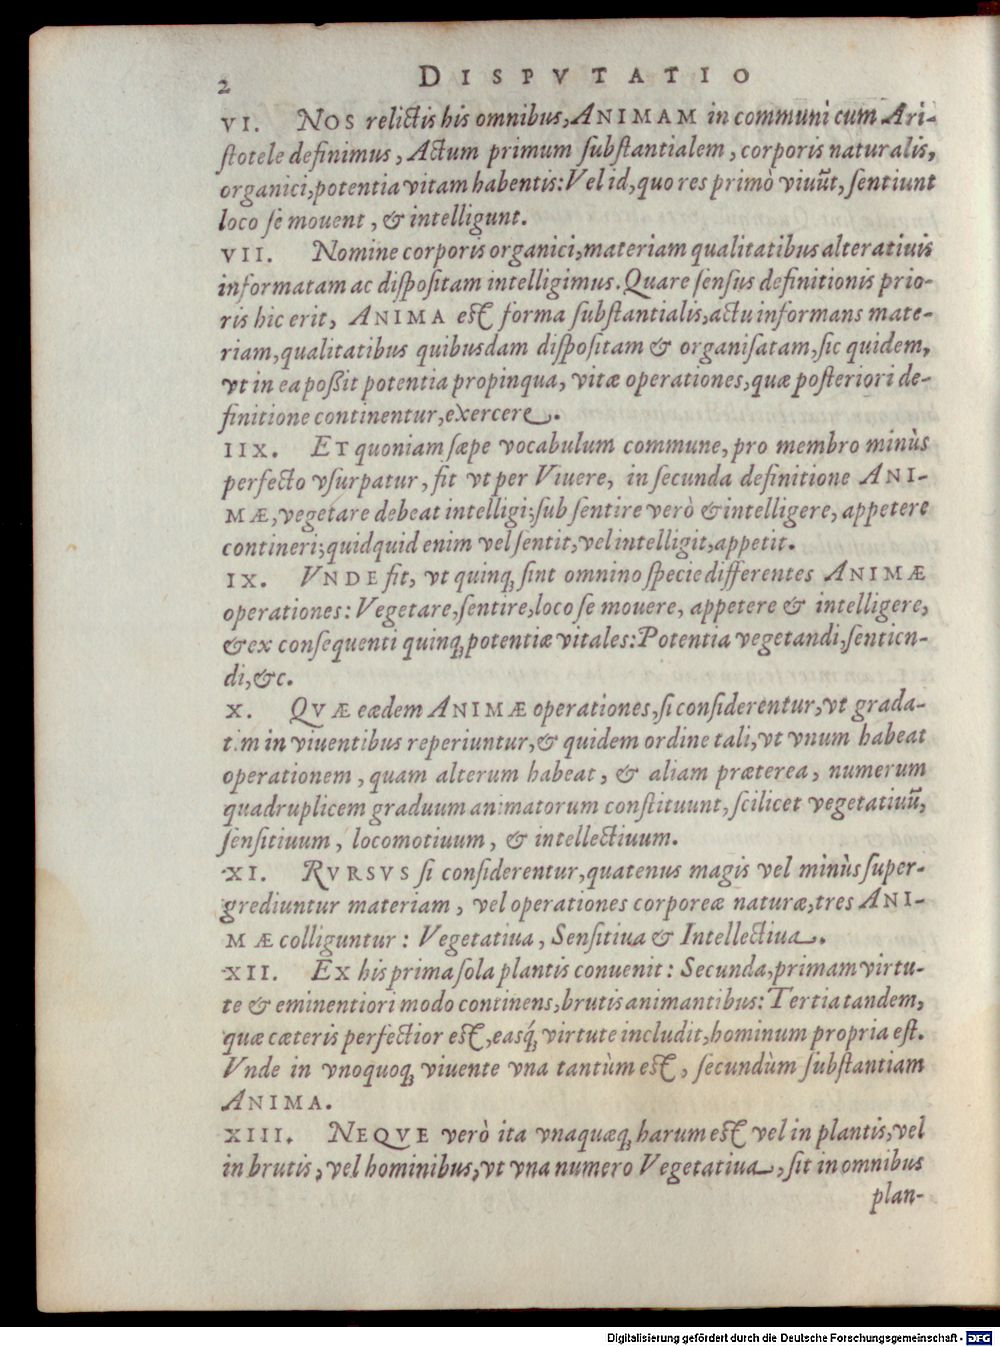 2 DISPVTATIO
VI. NOS relictis his omnibus, ANIMAM in communi cum Ari-
stotele definimus, Actum primum substantialem, corporis naturalis,
organici, potentia vitam habentis: Vel id, quo res primò viuūt, sentiunt
loco se mouent, & intelligunt.
VII. Nomine corporis organici, materiam qualitatibus alteratiuis
informatam ac dispositam intelligimus. Quare sensus definitionis prio-
ris hic erit, ANIMA est forma substantialis, actu informans mate-
riam, qualitatibus quibusdam dispositam & organisatam, sic quidem,
vt in ea poßit potentia propinqua, vitæ operationes, quæ posteriori de-
finitione continentur, exercere.
IIX. ET quoniam sæpe vocabulum commune, pro membro minùs
perfecto vsurpatur, fit vt per Viuere, in secunda definitione ANI-
MÆ, vegetare debeat intelligi; sub sentire verò & intelligere, appetere
contineri; quidquid enim vel sentit, vel intelligit, appetit.
IX. VNDE fit, vt quinq; sint omnino specie differentes ANIMÆ
operationes: Vegetare, sentire, loco se mouere, appetere & intelligere,
& ex consequenti quinq; potentiæ vitales: Potentia vegetandi, sentien-
di, &c.
X. QVÆ eædem ANIMÆ operationes, si considerentur, vt grada-
tim in viuentibus reperiuntur, & quidem ordine tali, vt vnum habeat
operationem, quam alterum habeat, & aliam præterea, numerum
quadruplicem graduum animatorum constituunt, scilicet vegetatiuū,
sensitiuum, locomotiuum, & intellectiuum.
XI. RVRSVS si considerentur, quatenus magis vel minùs super-
grediuntur materiam, vel operationes corporeæ naturæ, tres ANI-
MÆ colliguntur: Vegetatiua, Sensitiua & Intellectiua.
XII. EX his prima sola plantis conuenit: Secunda, primam virtu-
te & eminentiori modo continens, brutis animantibus: Tertia tandem,
quæ cæteris perfectior est, easq́; virtute includit, hominum propria est.
Vnde in vnoquoq; viuente vna tantùm est, secundùm substantiam
ANIMA.
XIII. NEQVE verò ita vnaquæq; harum est vel in plantis, vel
in brutis, vel hominibus, vt vna numero Vegetatiua, sit in omnibus
plan-
Digitalisierung gefördert durch die Deutsche Forschungsgemeinschaft - DFG